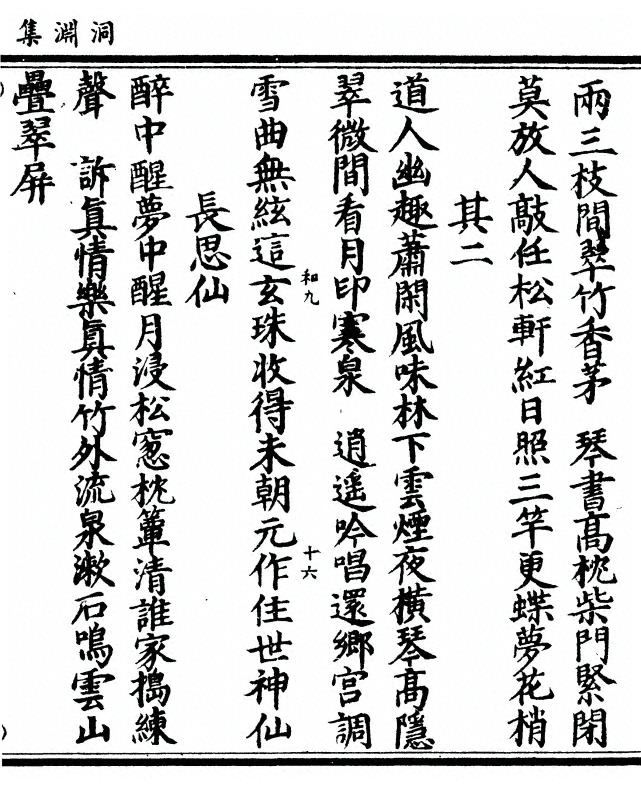 洞淵集
兩三枝間翠竹香茅　琴書高枕柴門緊閉
莫放人敲任松軒紅日照三竿更蝶夢花梢
其二
道人幽趣蕭閑風味林下雲煙夜橫琴高隱
翠微間看月印寒泉　逍遥吟唱還鄉宮調
和九
十六
雪曲無絃這玄珠收得未朝元作住世神仙
長思仙
醉中醒夢中醒月浸松窻枕簟清誰家搗練
聲　訴真情樂真情竹外流泉漱石鳴雲山
疊翠屏